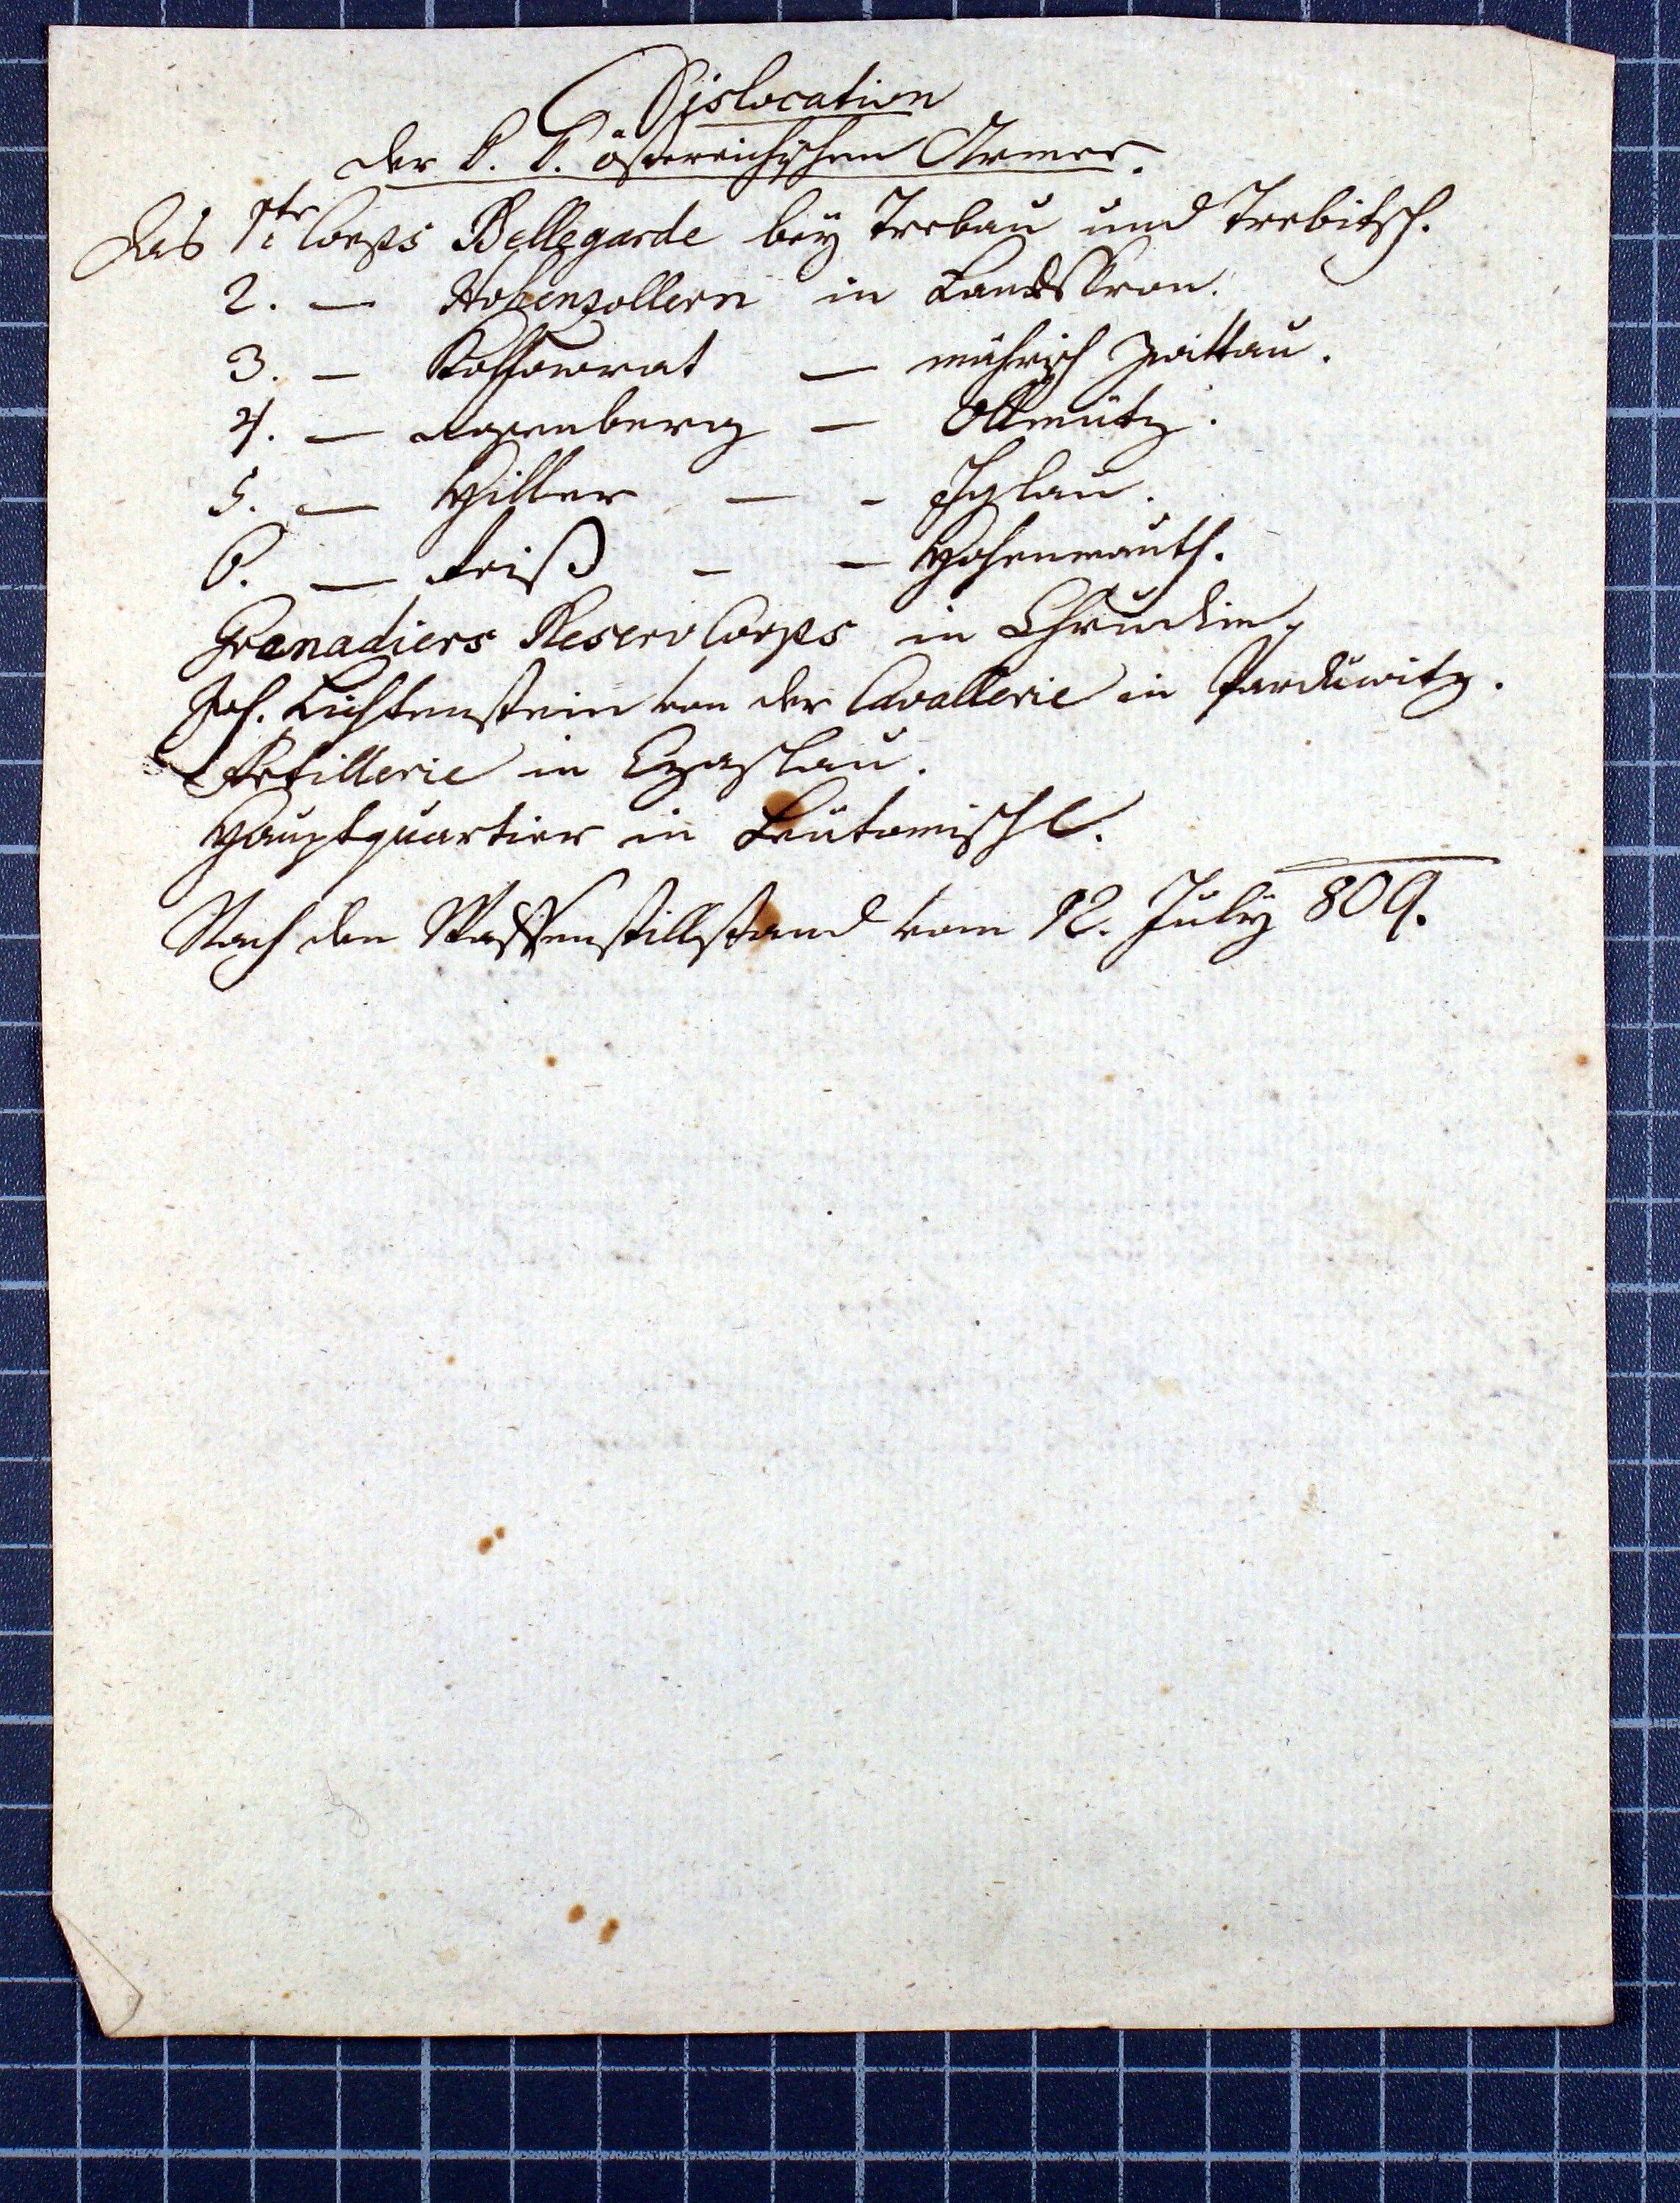 Dislocation
der K. K. österreichischen Armee.
Das 1te Corps Bellegarde bey Trebau und Trebitsch.
2. — Hohenzollern in Landskron.
3. — Kollowrat — mährisch Zwittau.
4. — Rosenberg — Ollmütz.
5. — Hiller — - Iglau.
6. — Reiß - - Hohenmauth.
Grenadiers Reserv Corps in Chrudim.
Joh. Lichtenstein von der Cavallerie in Parduwitz.
Artillerie in Czaslau.
Hauptquartier in Leutomischl.
Nach den Waffenstillstand vom 12. July 809.